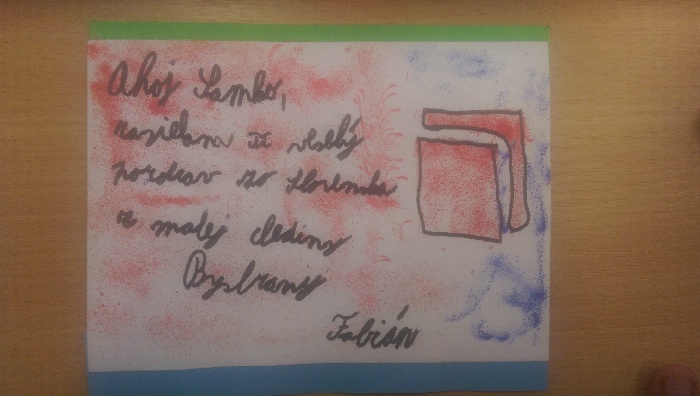 Ahoj Samko,
zasielam Ti veľký
pozdrav zo Slovenska
z malej dediny
Bystrany
Fabián